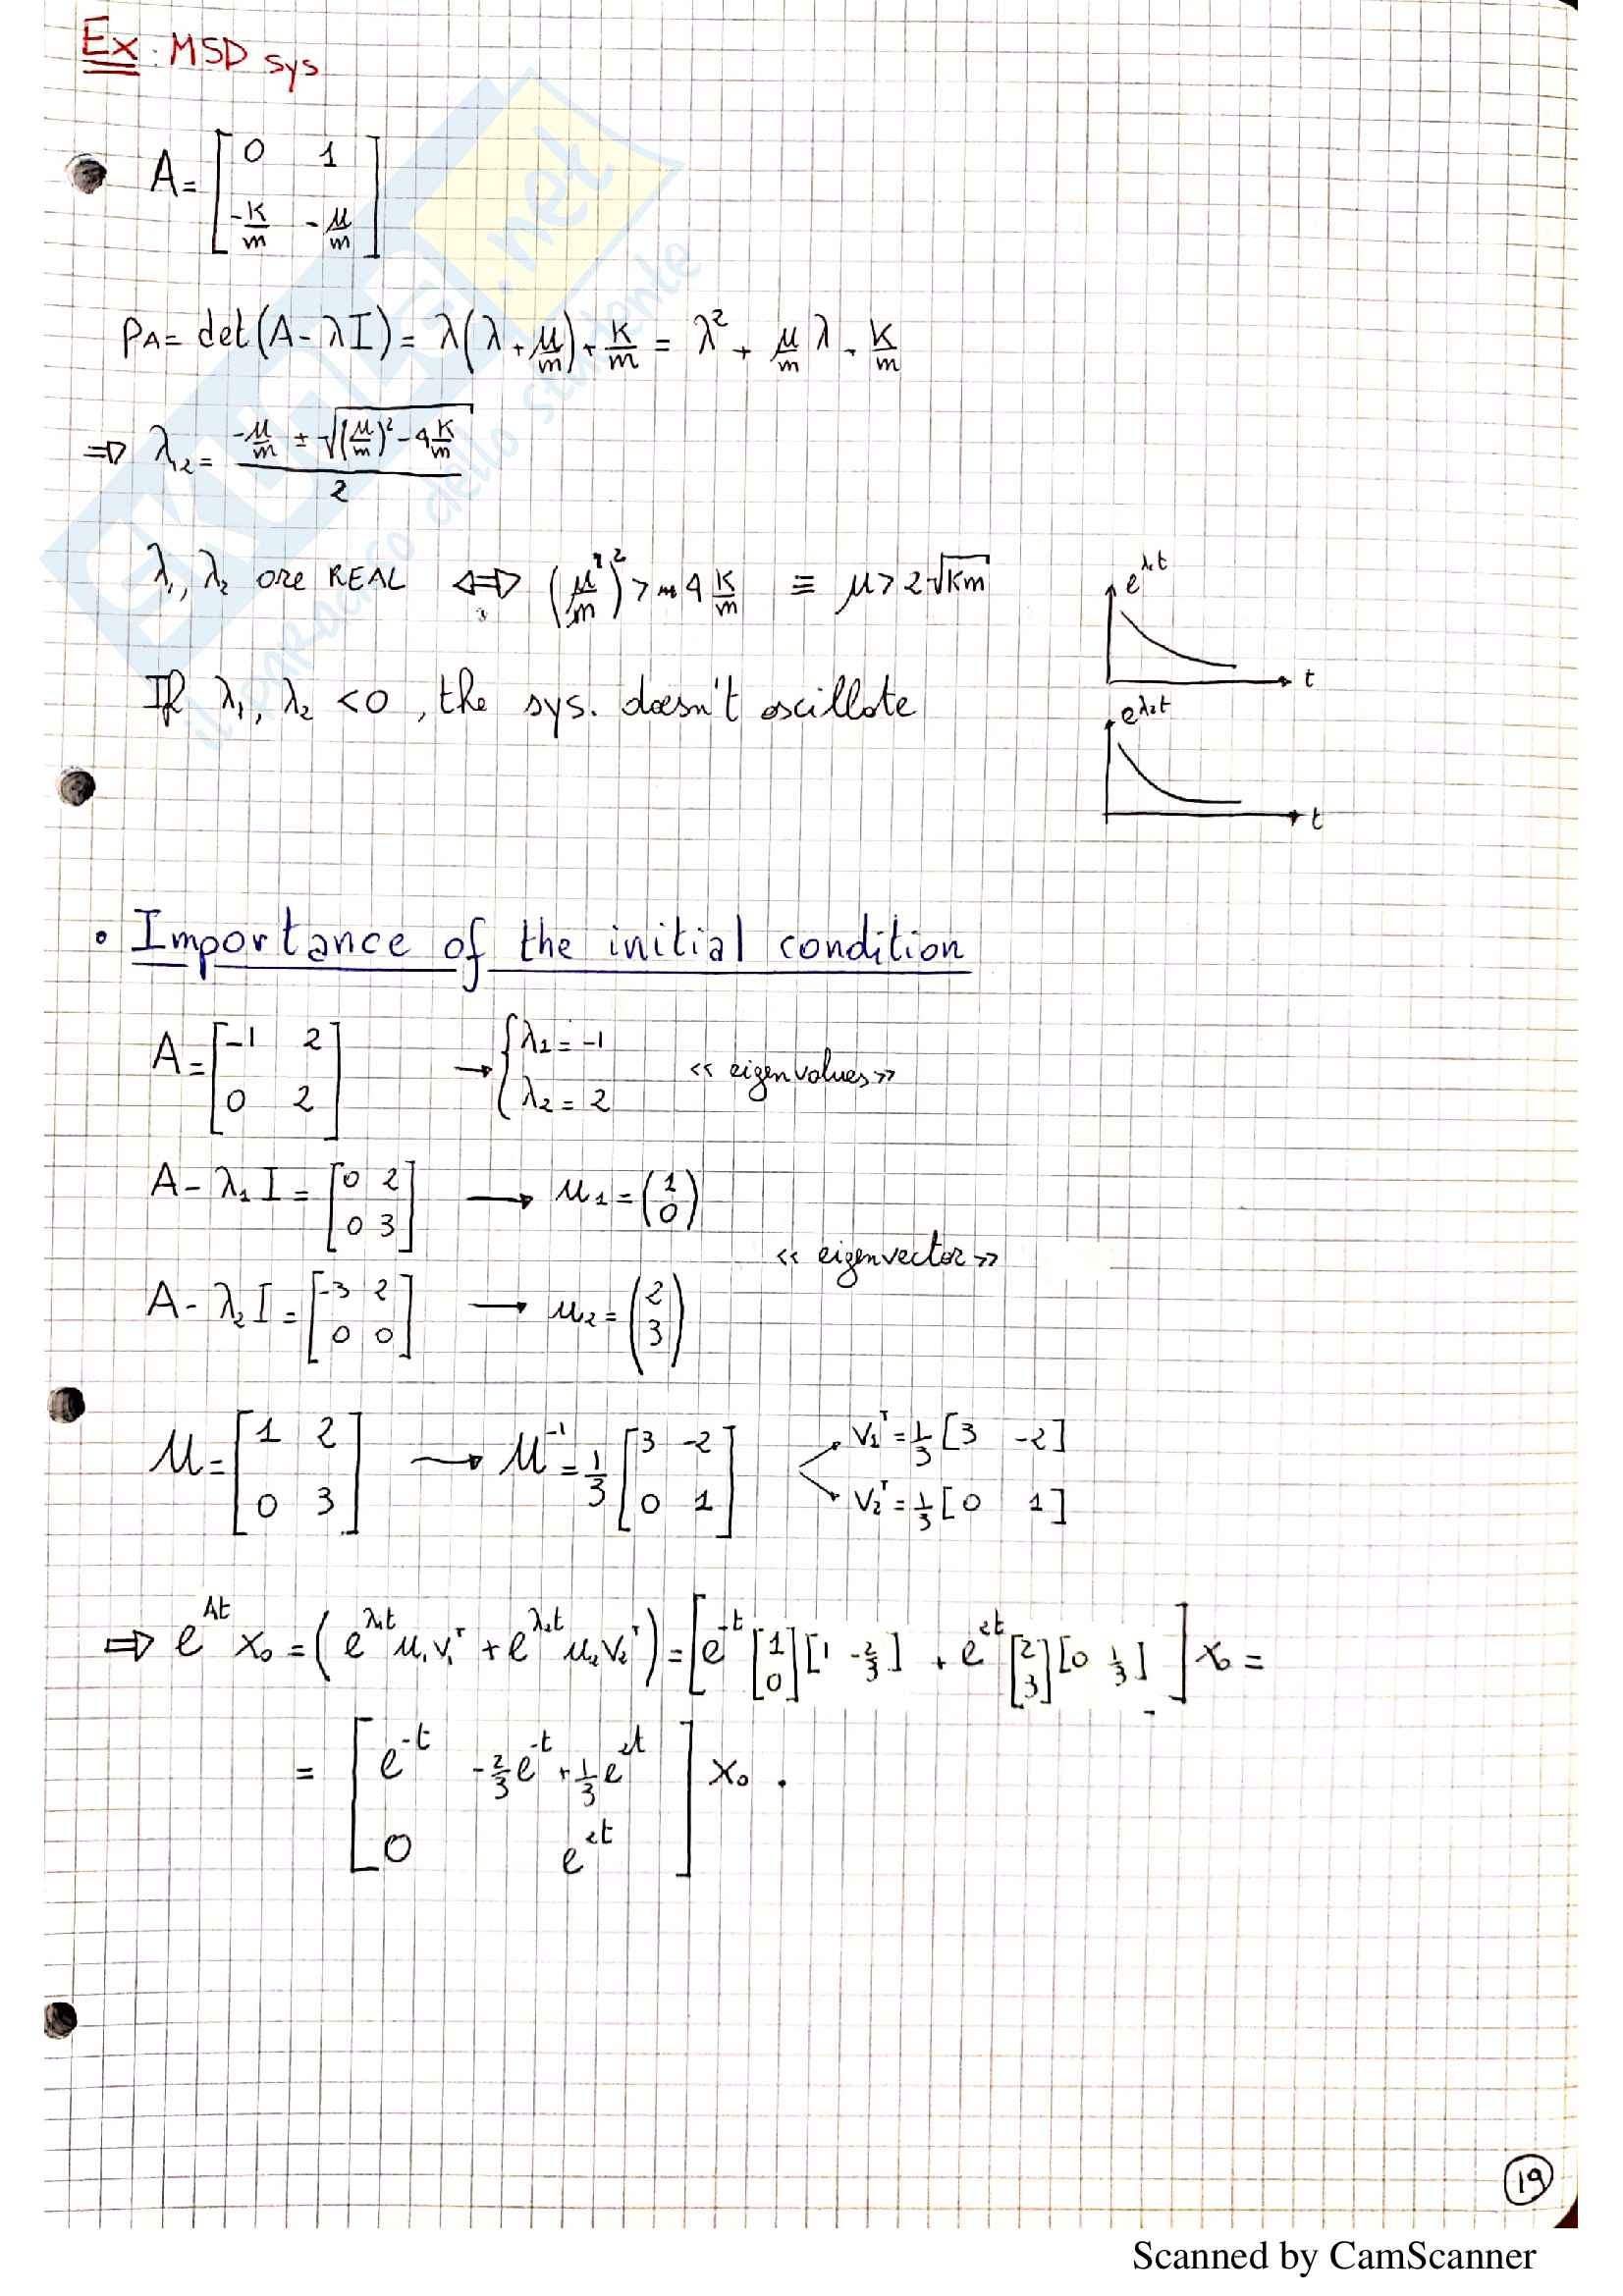 Ex: MSD sys
A = [ 0 1 ; -K/m -μ/m ]
PA = det(A - λI) = λ(λ + μ/m) + K/m = λ² + μ/m λ + K/m
=> λ12 = (-μ/m ± √((μ/m)² - 4 K/m)) / 2
λ1, λ2 are REAL <=> (μ/m)² > 4 K/m ≡ μ > 2√Km
e^λ1t
t
If λ1, λ2 < 0, the sys. doesn't oscillate
e^λ2t
t
• Importance of the initial condition
A = [ -1 2 ; 0 2 ] → { λ1 = -1 ; λ2 = 2 << eigenvalues >>
A - λ1 I = [ 0 2 ; 0 3 ] → μ1 = (1 ; 0)
<< eigenvector >>
A - λ2 I = [ -3 2 ; 0 0 ] → μ2 = (2 ; 3)
M = [ 1 2 ; 0 3 ] → M⁻¹ = 1/3 [ 3 -2 ; 0 1 ] v1ᵀ = 1/3 [3 -2] v2ᵀ = 1/3 [0 1]
=> e^At x0 = (e^λ1t μ1 v1ᵀ + e^λ2t μ2 v2ᵀ) = [ e^-t [1 ; 0] [1 -2/3] + e^2t [2 ; 3] [0 1/3] ] x0 =
= [ e^-t -2/3 e^-t + 1/3 e^2t ; 0 e^2t ] x0 .
19
Scanned by CamScanner
SKUOLA.net
il paradiso dello studente